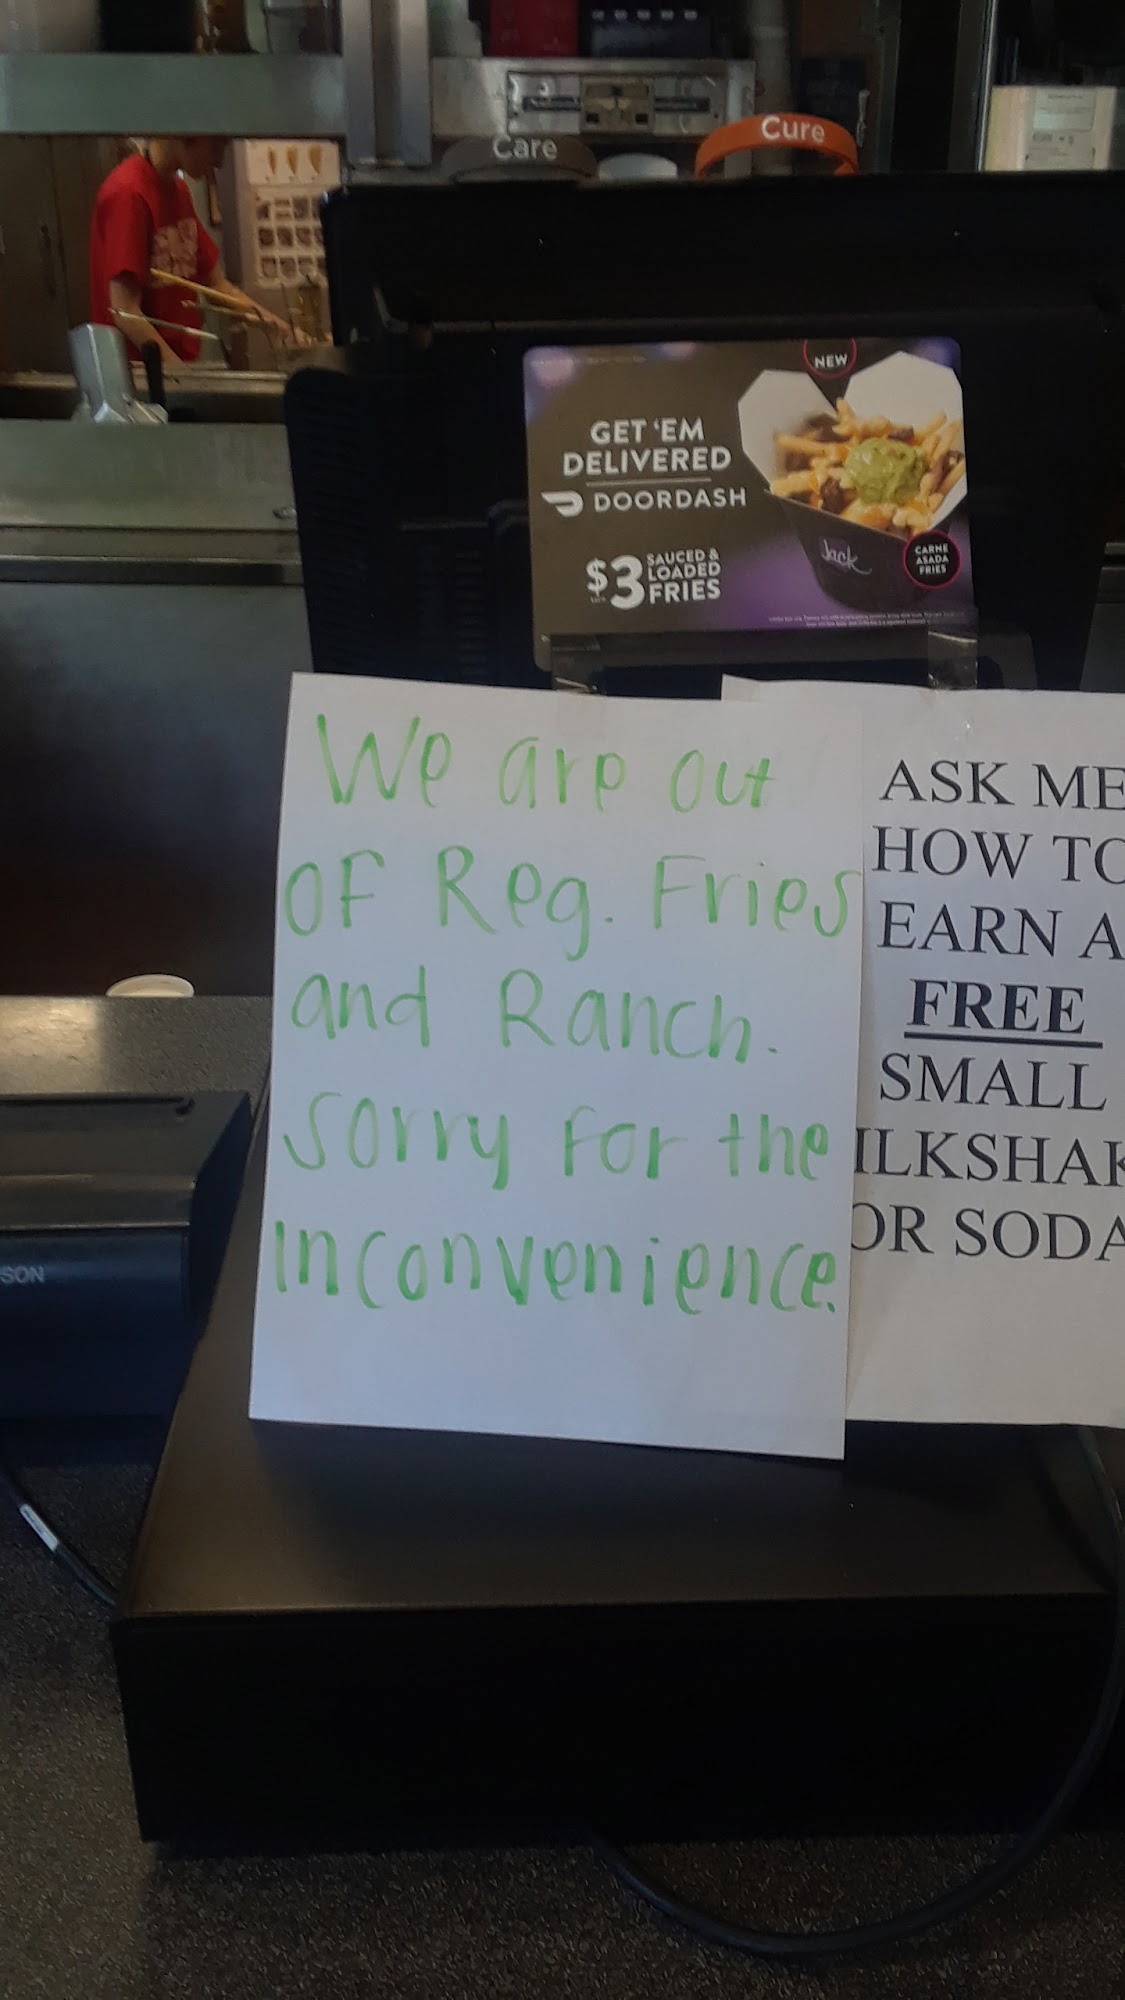 Care
Cure
NEW
GET 'EM
DELIVERED
DOORDASH
$3 SAUCED &
LOADED
FRIES
Jack
CARNE
ASADA
FRIES
We are out
OF Reg. Fries
and Ranch.
Sorry For the
Inconvenience.
ASK ME
HOW TO
EARN A
FREE
SMALL
ILKSHAK
OR SODA
SON